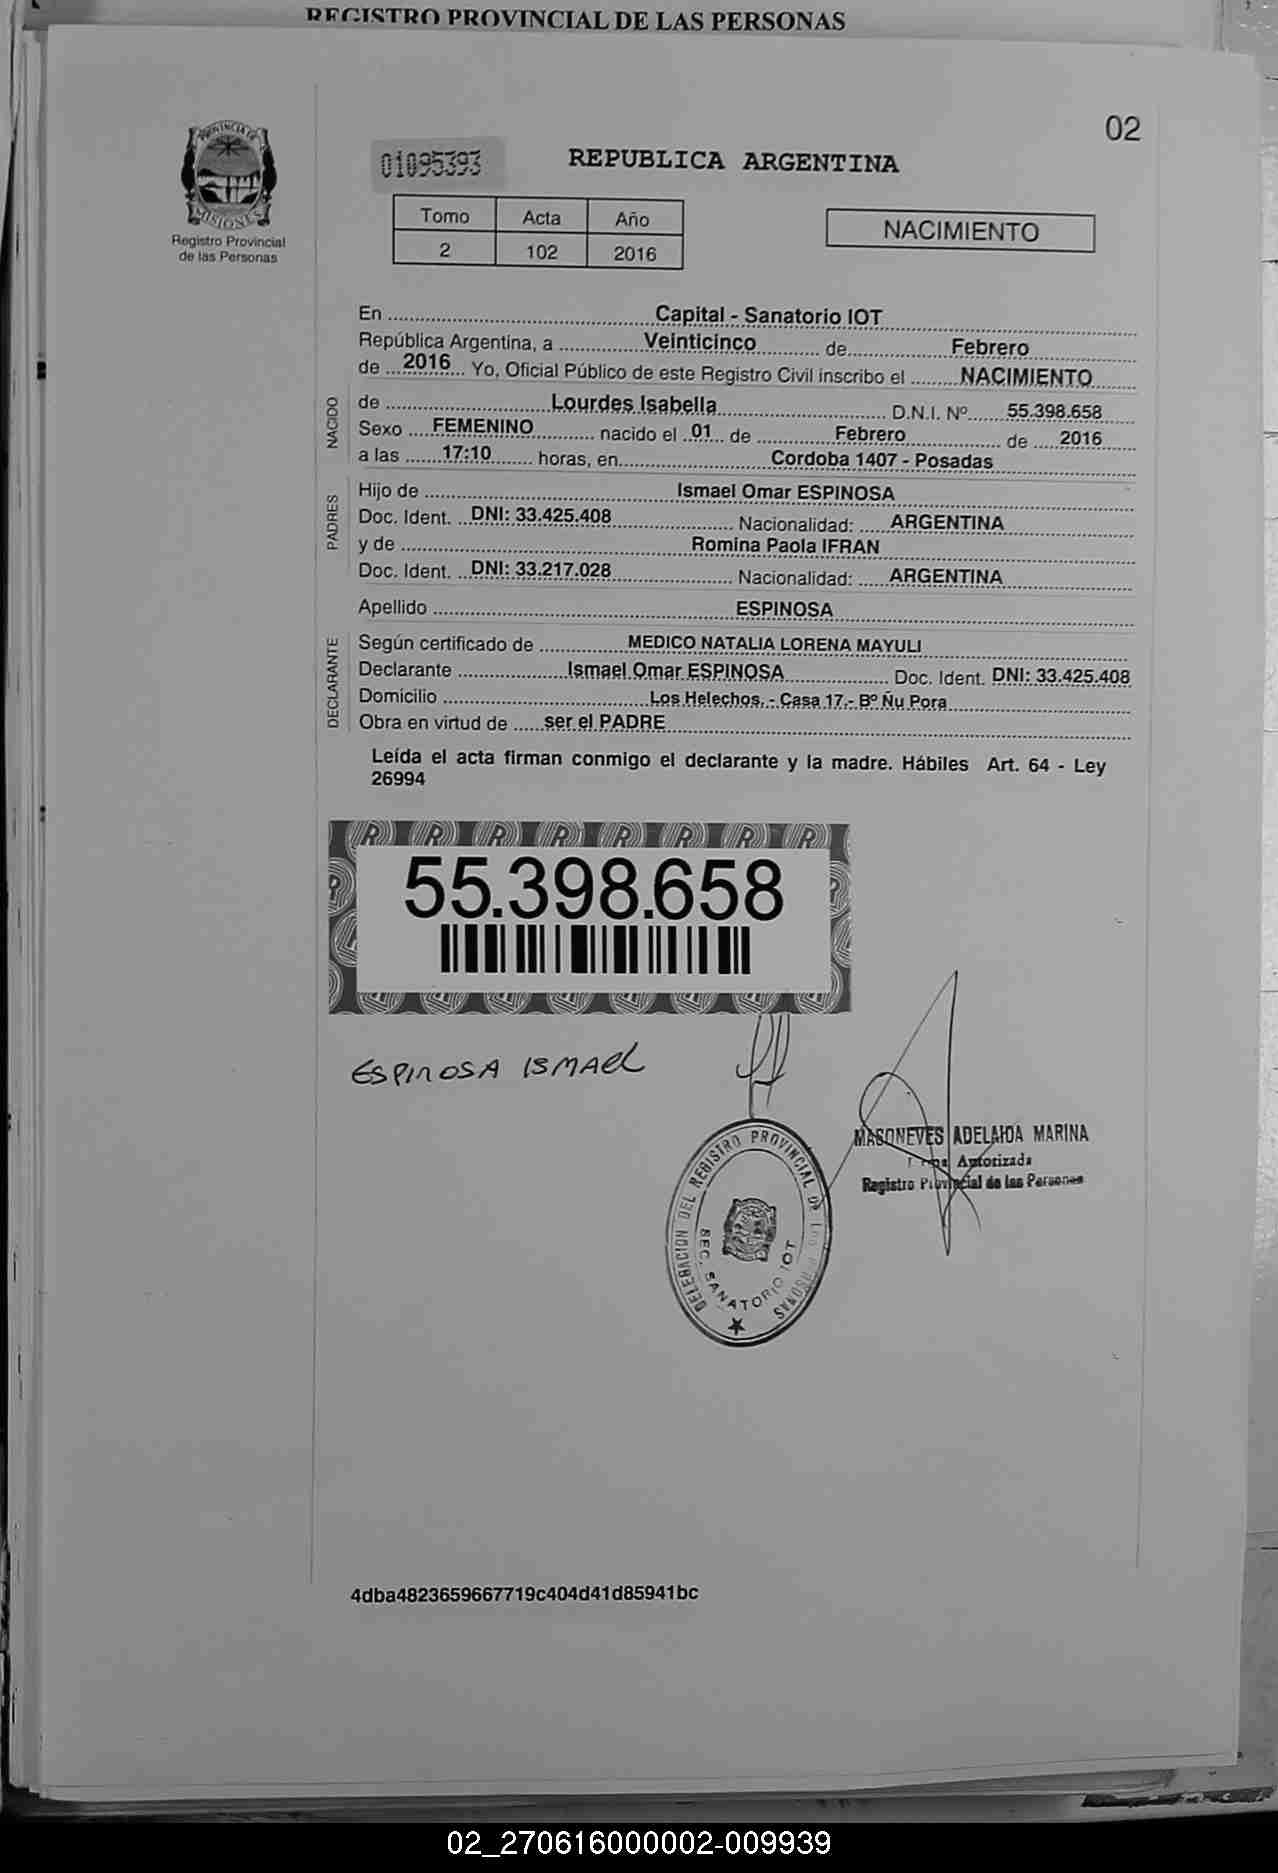 REGISTRO PROVINCIAL DE LAS PERSONAS
02
PROVINCIA DE
MISIONES
Registro Provincial
de las Personas
01095393
REPUBLICA ARGENTINA
Tomo Acta Año
2 102 2016
NACIMIENTO
En Capital - Sanatorio IOT
República Argentina, a Veinticinco de Febrero
de 2016 Yo, Oficial Público de este Registro Civil inscribo el NACIMIENTO
NACIDO
de Lourdes Isabella D.N.I. Nº 55.398.658
Sexo FEMENINO nacido el 01 de Febrero de 2016
a las 17:10 horas, en Cordoba 1407 - Posadas
PADRES
Hijo de Ismael Omar ESPINOSA
Doc. Ident. DNI: 33.425.408 Nacionalidad: ARGENTINA
y de Romina Paola IFRAN
Doc. Ident. DNI: 33.217.028 Nacionalidad: ARGENTINA
Apellido ESPINOSA
DECLARANTE
Según certificado de MEDICO NATALIA LORENA MAYULI
Declarante Ismael Omar ESPINOSA Doc. Ident. DNI: 33.425.408
Domicilio Los Helechos. - Casa 17.- Bº Ñu Pora
Obra en virtud de ser el PADRE
Leída el acta firman conmigo el declarante y la madre. Hábiles Art. 64 - Ley
26994
55.398.658
ESPINOSA ISMAEL
DELEGACION DEL REGISTRO PROVINCIAL DE LAS PERSONAS
SEC. SANATORIO IOT
ADELAIDA MARINA
Autorizada
Registro Provincial de las Personas
4dba4823659667719c404d41d85941bc
02_270616000002-009939